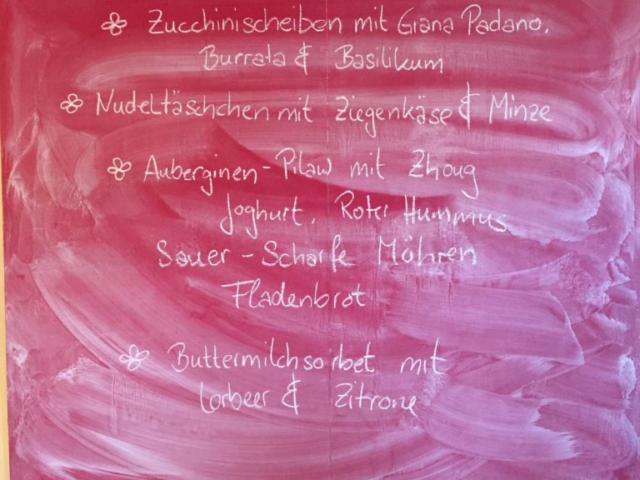 Zucchinischeiben mit Grana Padano,
Burrata & Basilikum
Nudeltäschchen mit Ziegenkäse & Minze
Auberginen-Pilaw mit Zhoug
Joghurt, Roter Hummus
Sauer-Scharfe Möhren
Fladenbrot
Buttermilchsorbet mit
Lorbeer & Zitrone